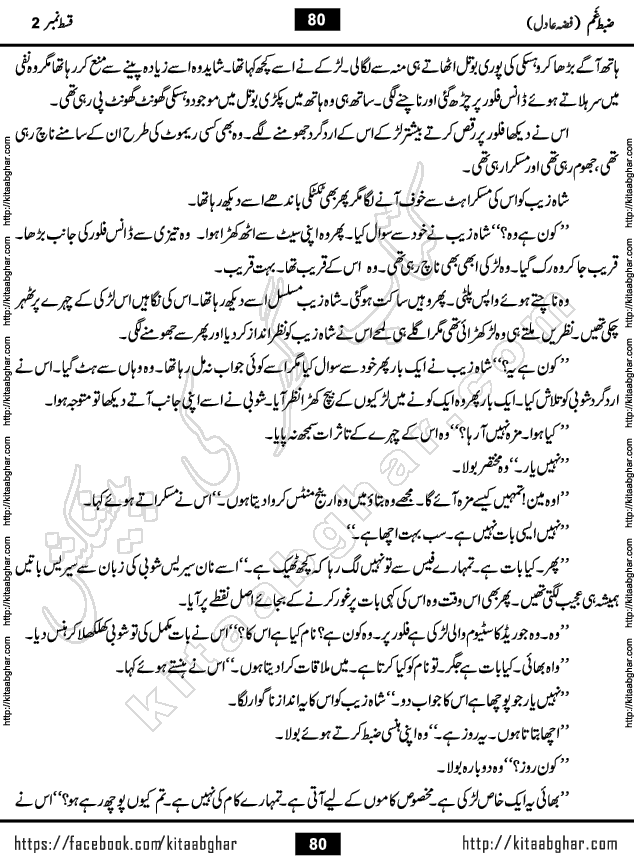 ضبطِ غم (فضہ عادل)
80
قسط نمبر 2
ہاتھ آگے بڑھا کر وہسکی کی پوری بوتل اٹھاتے ہی منہ سے لگالی۔ لڑکے نے اسے کچھ کہا تھا۔ شاید وہ اسے زیادہ پینے سے منع کر رہا تھا مگر وہ نفی
میں سر ہلاتے ہوئے ڈانس فلور پر چڑھ گئی اور ناچنے لگی۔ ساتھ ہی وہ ہاتھ میں پکڑی بوتل میں موجود وہسکی گھونٹ گھونٹ پی رہی تھی۔
اس نے دیکھا فلور پر رقص کرتے بیشتر لڑکے اس کے اردگرد جھومنے لگے۔ وہ بھی کسی ریموٹ کی طرح ان کے سامنے ناچ رہی
تھی، جھوم رہی تھی اور مسکرا رہی تھی۔
شاہ زیب کو اس کی مسکراہٹ سے خوف آنے لگا مگر پھر بھی ٹکٹکی باندھے اسے دیکھ رہا تھا۔
’’کون ہے وہ؟‘‘ شاہ زیب نے خود سے سوال کیا۔ پھر وہ اپنی سیٹ سے اٹھ کھڑا ہوا۔ وہ تیزی سے ڈانس فلور کی جانب بڑھا۔
قریب جا کر وہ رک گیا۔ وہ لڑکی ابھی بھی ناچ رہی تھی۔ وہ اس کے قریب تھا۔ بہت قریب۔
وہ ناچتے ہوئے واپس پلٹی۔ پھر وہیں ساکت ہوگئی۔ شاہ زیب مسلسل اسے دیکھ رہا تھا۔ اس کی نگاہیں اس لڑکی کے چہرے پر ٹھہر
چکی تھیں۔ نظریں ملتے ہی وہ لڑکھڑائی تھی مگر اگلے ہی لمحے اس نے شاہ زیب کو نظر انداز کر دیا اور پھر سے جھومنے لگی۔
’’کون ہے یہ؟‘‘ شاہ زیب نے ایک بار پھر خود سے سوال کیا مگر اسے کوئی جواب نہ مل رہا تھا۔ وہ وہاں سے ہٹ گیا۔ اس نے
اردگرد شوبی کو تلاش کیا۔ ایک بار پھر وہ ایک کونے میں لڑکیوں کے بیچ کھڑا نظر آیا۔ شوبی نے اسے اپنی جانب آتے دیکھا تو متوجہ ہوا۔
’’کیا ہوا۔ مزہ نہیں آرہا؟‘‘ وہ اس کے چہرے کے تاثرات سمجھ نہ پایا۔
’’نہیں یار۔‘‘ وہ مختصر بولا۔
’’اوہ مین! تمہیں کیسے مزہ آئے گا۔ مجھے وہ بتاؤ میں وہ ارینج منٹس کروا دیتا ہوں۔‘‘ اس نے مسکراتے ہوئے کہا۔
’’نہیں ایسی بات نہیں ہے۔ سب بہت اچھا ہے۔‘‘
’’پھر۔ کیا بات ہے۔ تمہارے فیس سے تو نہیں لگ رہا کہ کچھ ٹھیک ہے۔‘‘ اسے نان سیریس شوبی کی زبان سے سیریس باتیں
ہمیشہ ہی عجیب لگتی تھیں۔ پھر بھی اس وقت وہ اس کی کہی بات پر غور کرنے کے بجائے اصل نقطے پر آیا۔
’’وہ۔ وہ جو ریڈ کاسٹیوم والی لڑکی ہے فلور پر۔ وہ کون ہے؟ نام کیا ہے اس کا؟‘‘ اس نے بات مکمل کی تو شوبی کھلکھلا کر ہنس دیا۔
’’واہ بھائی۔ کیا بات ہے جگر۔ تو نام کو کیا کرتا ہے۔ میں ملاقات کرا دیتا ہوں۔‘‘ اس نے ہنستے ہوئے کہا۔
’’نہیں یار جو پوچھا ہے اس کا جواب دو۔‘‘ شاہ زیب کو اس کا یہ انداز ناگوار لگا۔
’’اچھا بتاتا ہوں۔ یہ روز ہے۔‘‘ وہ اپنی ہنسی ضبط کرتے ہوئے بولا۔
’’کون روز؟‘‘ وہ دوبارہ بولا۔
’’بھائی یہ ایک خاص لڑکی ہے۔ مخصوص کاموں کے لیے آتی ہے۔ تمہارے کام کی نہیں ہے۔ تم کیوں پوچھ رہے ہو؟‘‘ اس نے
http://kitaabghar.com http://kitaabghar.com http://kitaabghar.com http://kitaabghar.com http://kitaabghar.com http://kitaabghar.com
http://kitaabghar.com http://kitaabghar.com http://kitaabghar.com http://kitaabghar.com http://kitaabghar.com http://kitaabghar.com
کتاب گھر کی پیشکش
kitaabghar.com
https://facebook.com/kitaabghar
80
http://kitaabghar.com